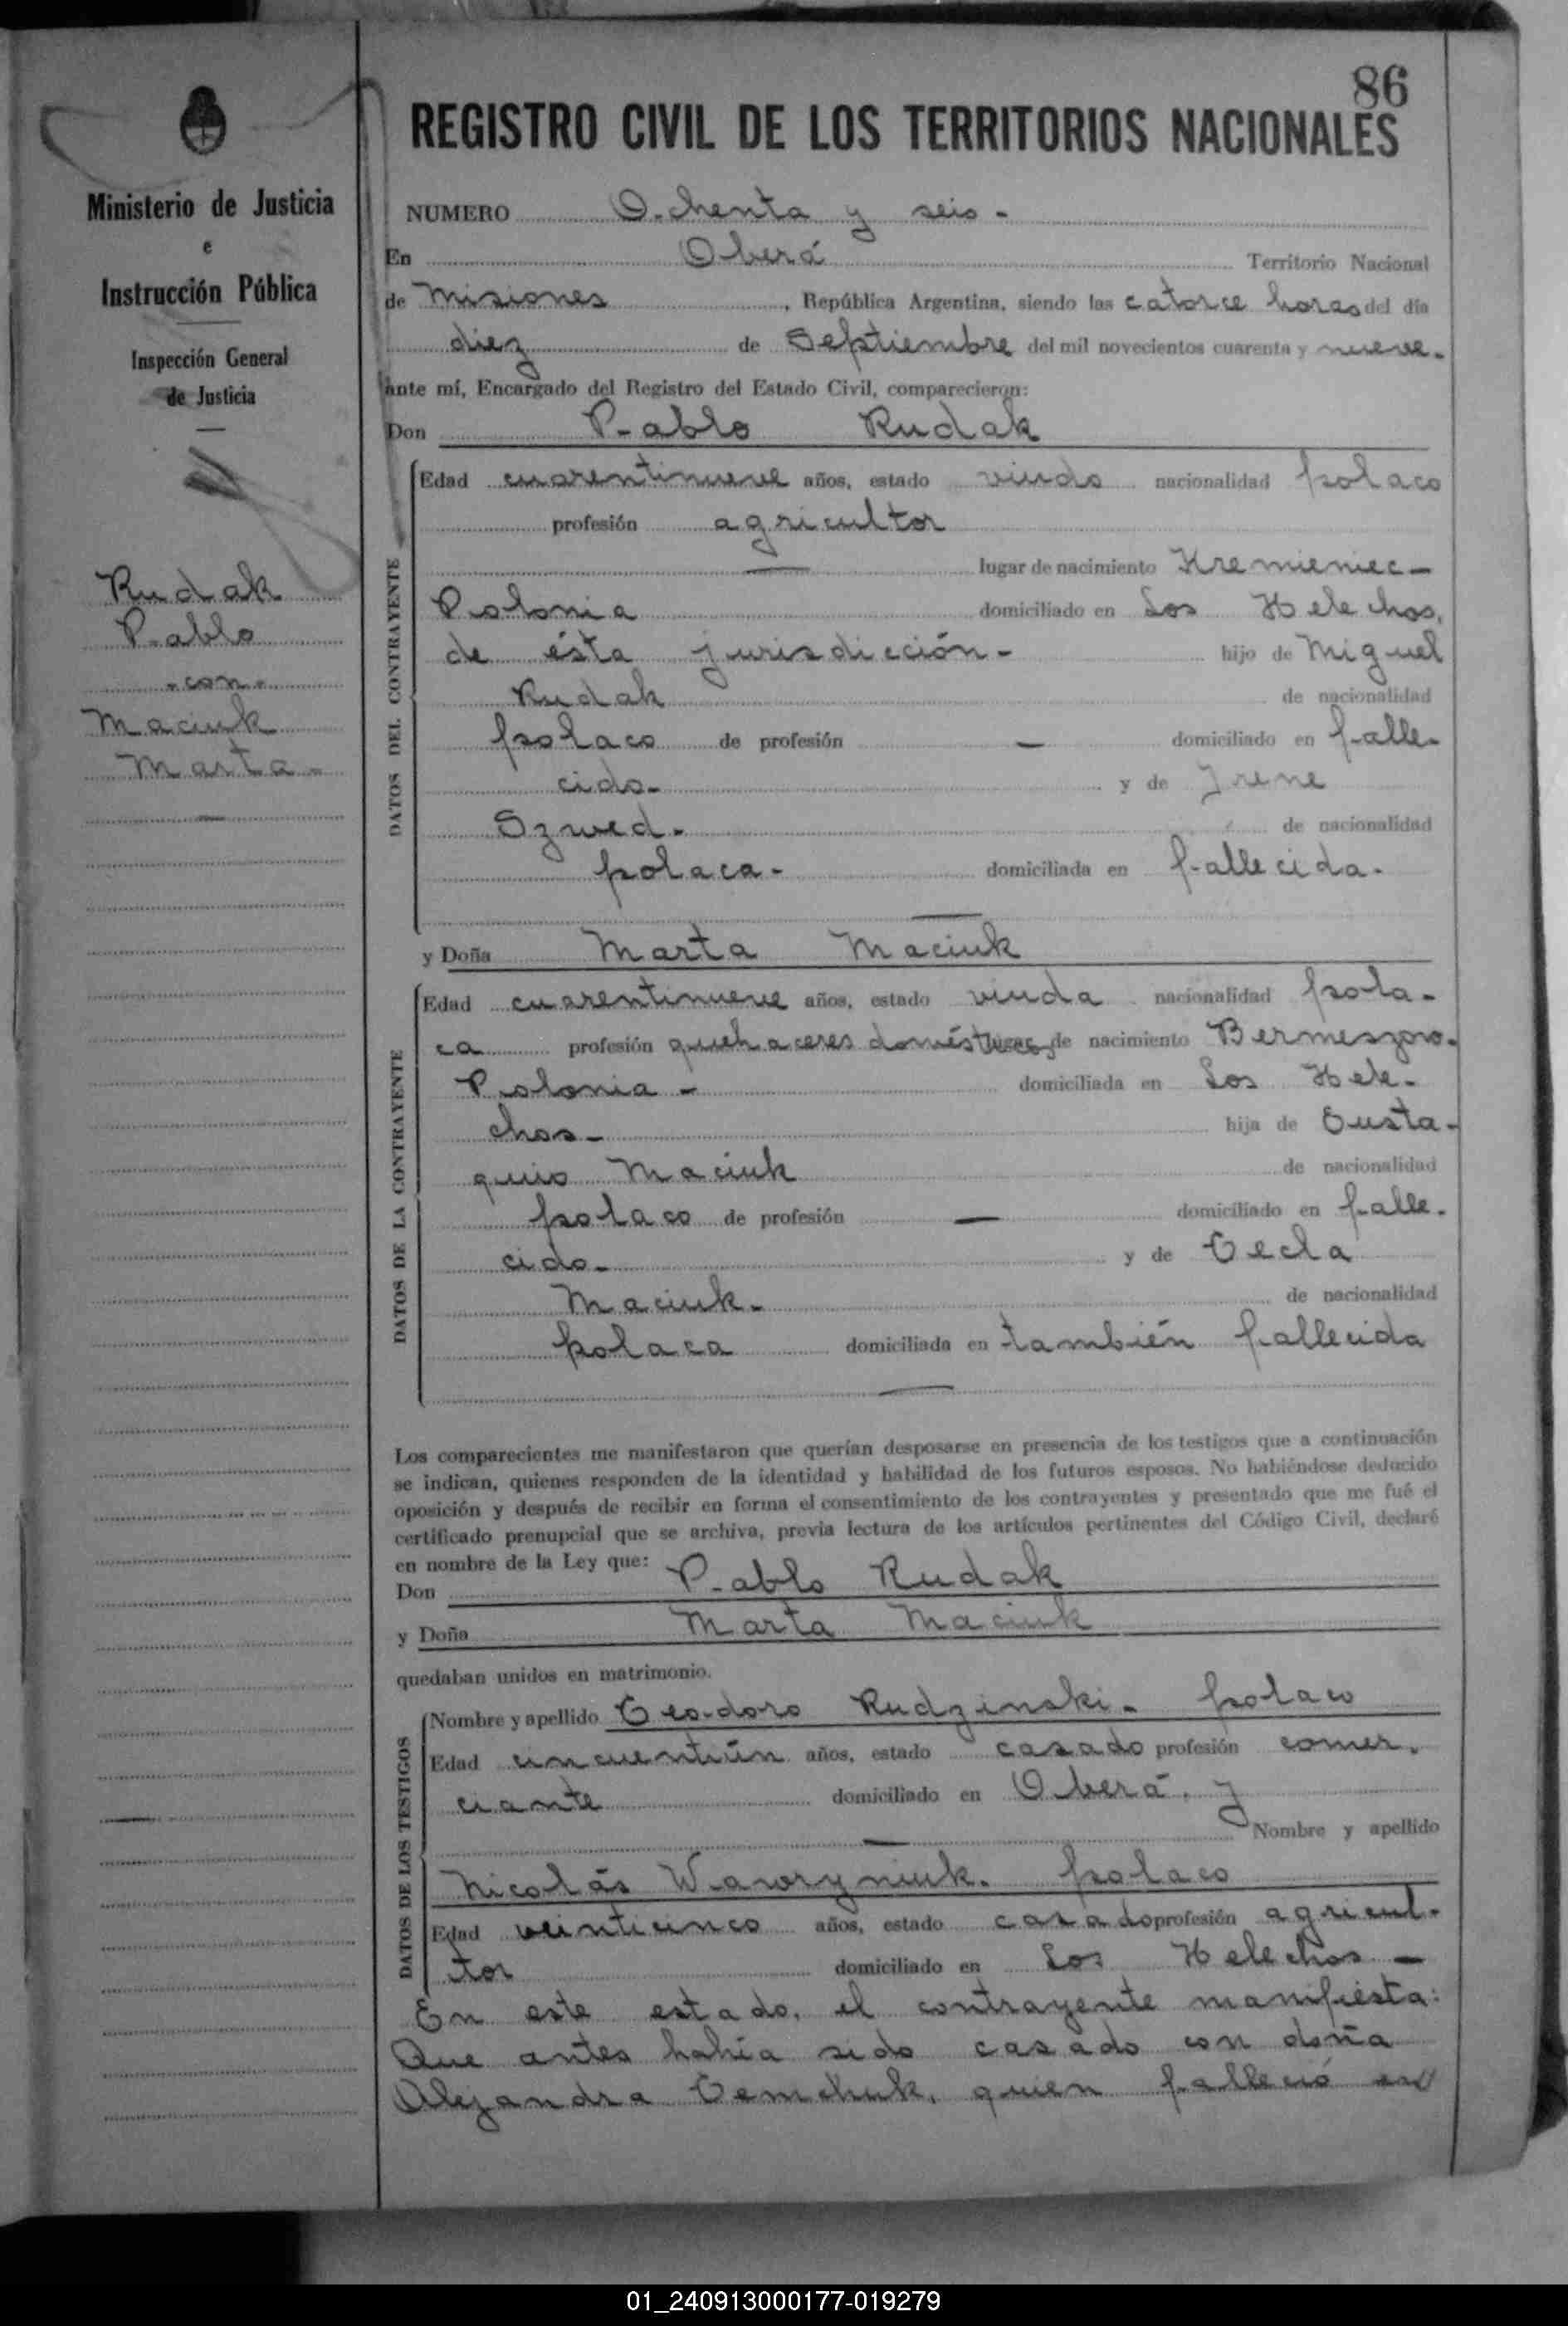 86
REGISTRO CIVIL DE LOS TERRITORIOS NACIONALES
Ministerio de Justicia
e
Instrucción Pública
Inspección General
de Justicia
Rudak
Pablo
-con-
Maciuk
Marta-
NUMERO Ochenta y seis-
En Oberá Territorio Nacional
de Misiones, República Argentina, siendo las catorce horas del día
diez de Septiembre del mil novecientos cuarenta y nueve-
ante mí, Encargado del Registro del Estado Civil, comparecieron:
Don Pablo Rudak
DATOS DEL CONTRAYENTE
Edad cuarentinueve años, estado viudo nacionalidad polaco
profesión agricultor
lugar de nacimiento Kremieniec-
Polonia domiciliado en Los Helechos,
de ésta jurisdicción- hijo de Miguel
Rudak de nacionalidad
polaco de profesión — domiciliado en falle-
cido- y de Irene
Szwed- de nacionalidad
polaca- domiciliada en fallecida-
y Doña Marta Maciuk
DATOS DE LA CONTRAYENTE
Edad cuarentinueve años, estado viuda nacionalidad pola-
ca profesión quehaceres domésticos lugar de nacimiento
Polonia- domiciliada en Los Hele-
chos- hija de Eusta-
quio Maciuk de nacionalidad
polaco de profesión — domiciliado en falle-
cido- y de Tecla
Maciuk- de nacionalidad
polaca domiciliada en también fallecida
Los comparecientes me manifestaron que querían desposarse en presencia de los testigos que a continuación
se indican, quienes responden de la identidad y habilidad de los futuros esposos. No habiéndose deducido
oposición y después de recibir en forma el consentimiento de los contrayentes y presentado que me fué el
certificado prenupcial que se archiva, previa lectura de los artículos pertinentes del Código Civil, declaré
en nombre de la Ley que:
Don Pablo Rudak
y Doña Marta Maciuk
quedaban unidos en matrimonio.
DATOS DE LOS TESTIGOS
Nombre y apellido Teodoro Rudzinski- polaco
Edad cincuentiún años, estado casado profesión comer-
ciante domiciliado en Oberá, y
Nombre y apellido
Nicolás Wawryniuk- polaco
Edad veinticinco años, estado casado profesión agricul-
tor domiciliado en Los Helechos-
En este estado, el contrayente manifiesta:
Que antes había sido casado con doña
Alejandra Temchuk, quien falleció en
01_240913000177-019279